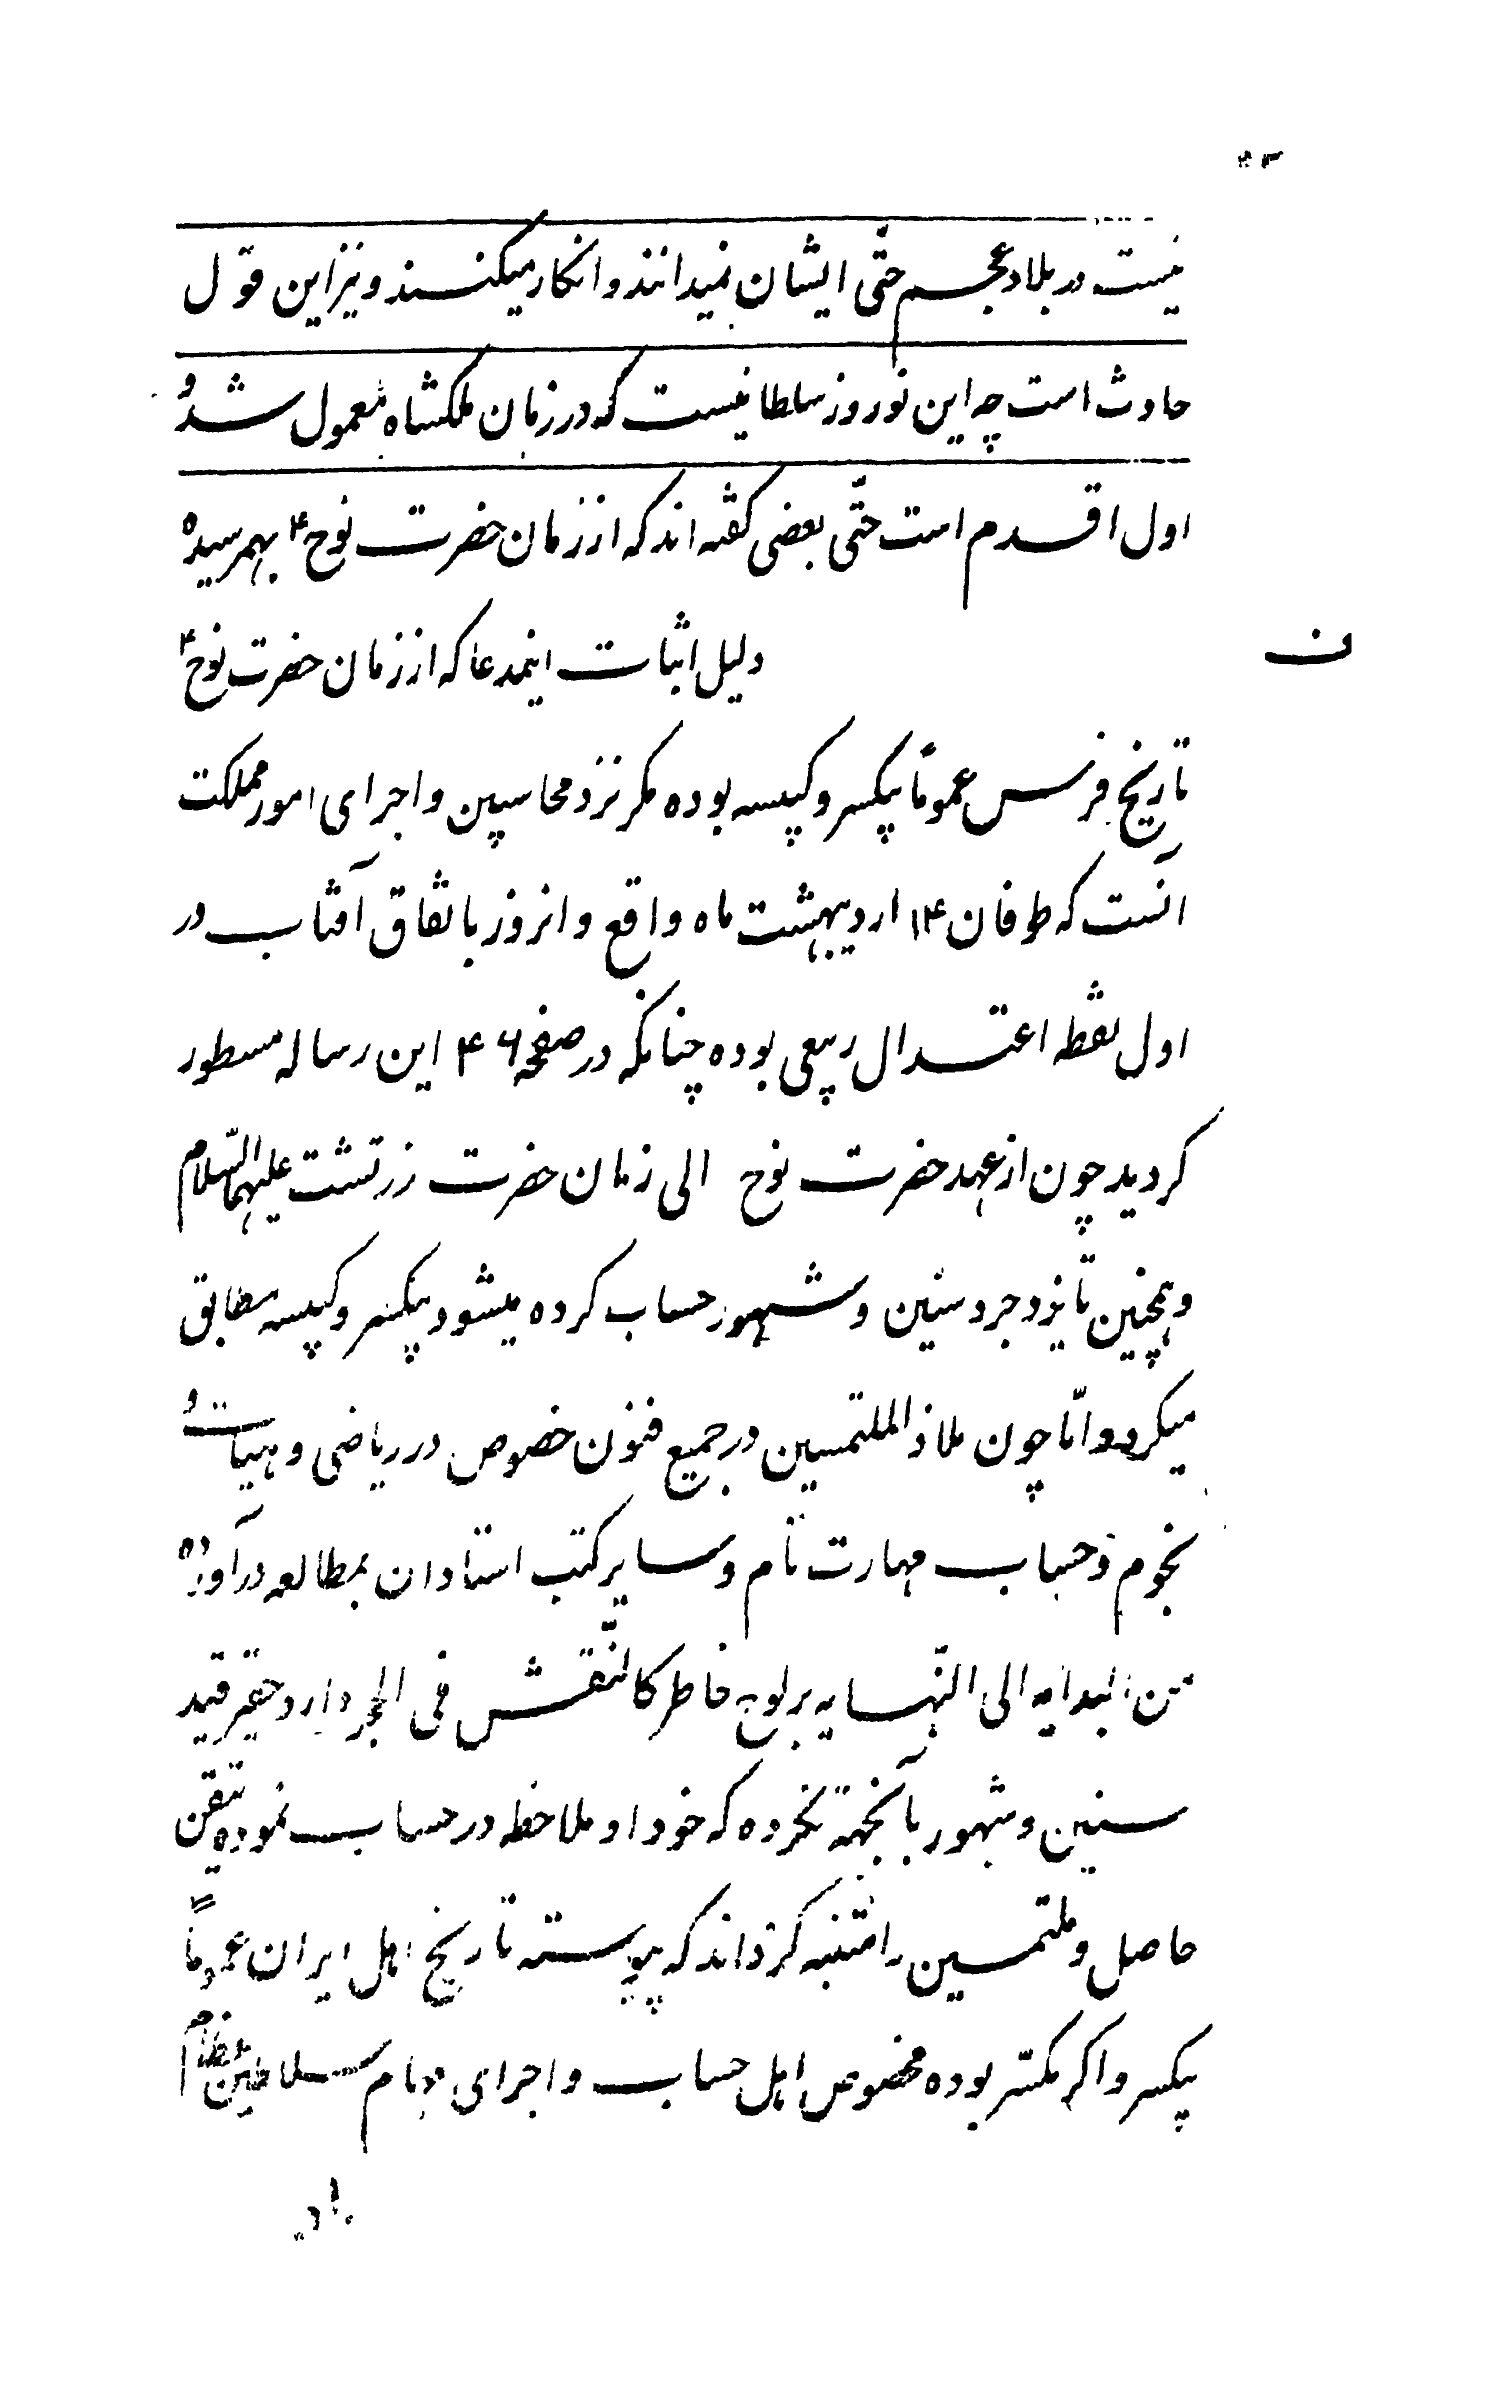 نیست در بلاد عجم حتّی ایشان نمیدانند و انکار میکنند و نیز این قول
حادث است چه این نوروز سلطانیست که در زمان ملکشاه معمول شد و
اول اقدم است حتّی بعضی کفته اند که از زمان حضرت نوح ۴ بهمرسیده
ن
دلیل اثبات اینمدعا که از زمان حضرت نوح ۴
تاریخ فرس عموماً بیکسر و کبیسه بوده مکر نزد محاسبین و اجرای امور مملکت
آنست که طوفان ۱۴ اردیبهشت ماه واقع و انروز باتفاق آفتاب در
اول نقطه اعتدال ربیعی بوده چنانکه در صفحه ۴۶ این رساله مسطور
کردید چون از عهد حضرت نوح الی زمان حضرت زرتشت علیهما السّلام
و همچنین تا یزدجرد سنین و شهور حساب کرده میشود بیکسر و کبیسه مطابق
میکردد امّا چون ملاذ الملتمسین در جمیع فنون خصوص در ریاضی و هیات و
نجوم و حساب مهارت تام و سایر کتب استادان بمطالعه درآورده
من البدایه الی النّهایه بر لوح خاطر کالنّقش فی الحجر دارد حقیر قید
سنین و شهور بآنجهة نکرده که خود او ملاحظه در حساب نموده تیقن
حاصل و ملتمسین را متنبه کرداند که پیوسته تاریخ اهل ایران عموماً
بیکسر و اکر مکسّر بوده مخصوص اهل حساب و اجرای مهام سلاطین عظام